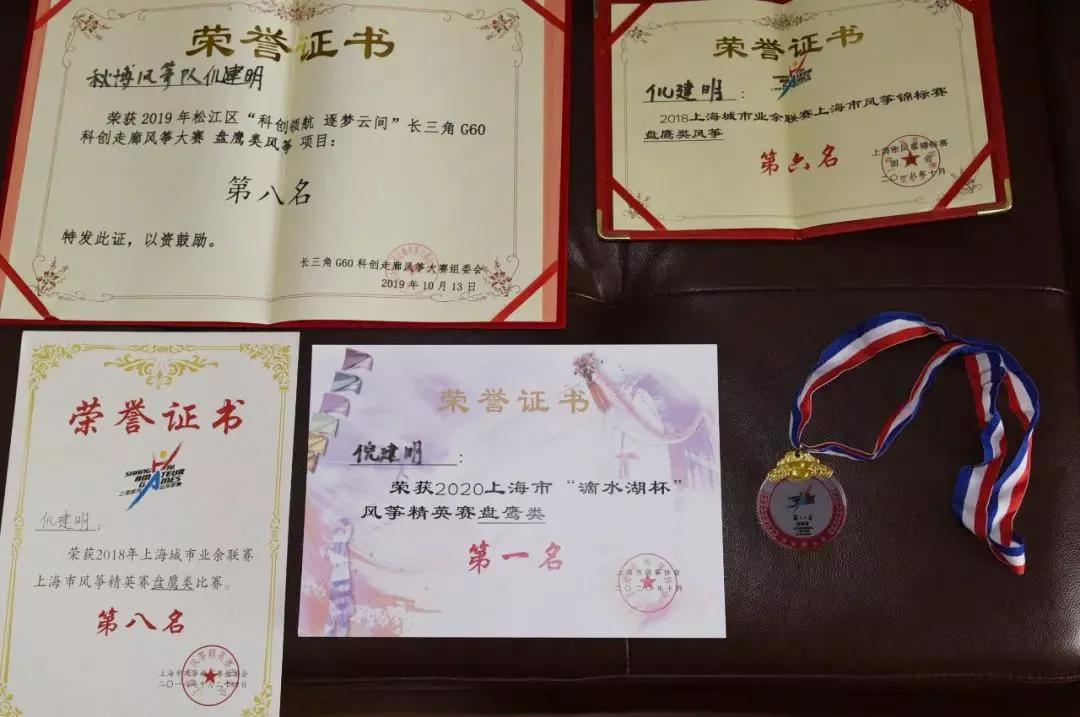 荣誉证书
秋博风筝队仉建明
荣获2019年松江区“科创领航 逐梦云间”长三角G60
科创走廊风筝大赛 盘鹰类风筝 项目：
第八名
特发此证，以资鼓励。
长三角G60科创走廊风筝大赛组委会
2019年10月13日
荣誉证书
仉建明：
2018上海城市业余联赛上海市风筝锦标赛
盘鹰类风筝
第六名
上海市风筝锦标赛
二〇一八年十月
荣誉证书
SHANGHAI
AMATEUR
GAMES
仉建明：
荣获2018年上海城市业余联赛
上海市风筝精英赛盘鹰类比赛。
第八名
荣誉证书
倪建明：
荣获2020上海市“滴水湖杯”
风筝精英赛盘鹰类
第一名
上海市风筝协会